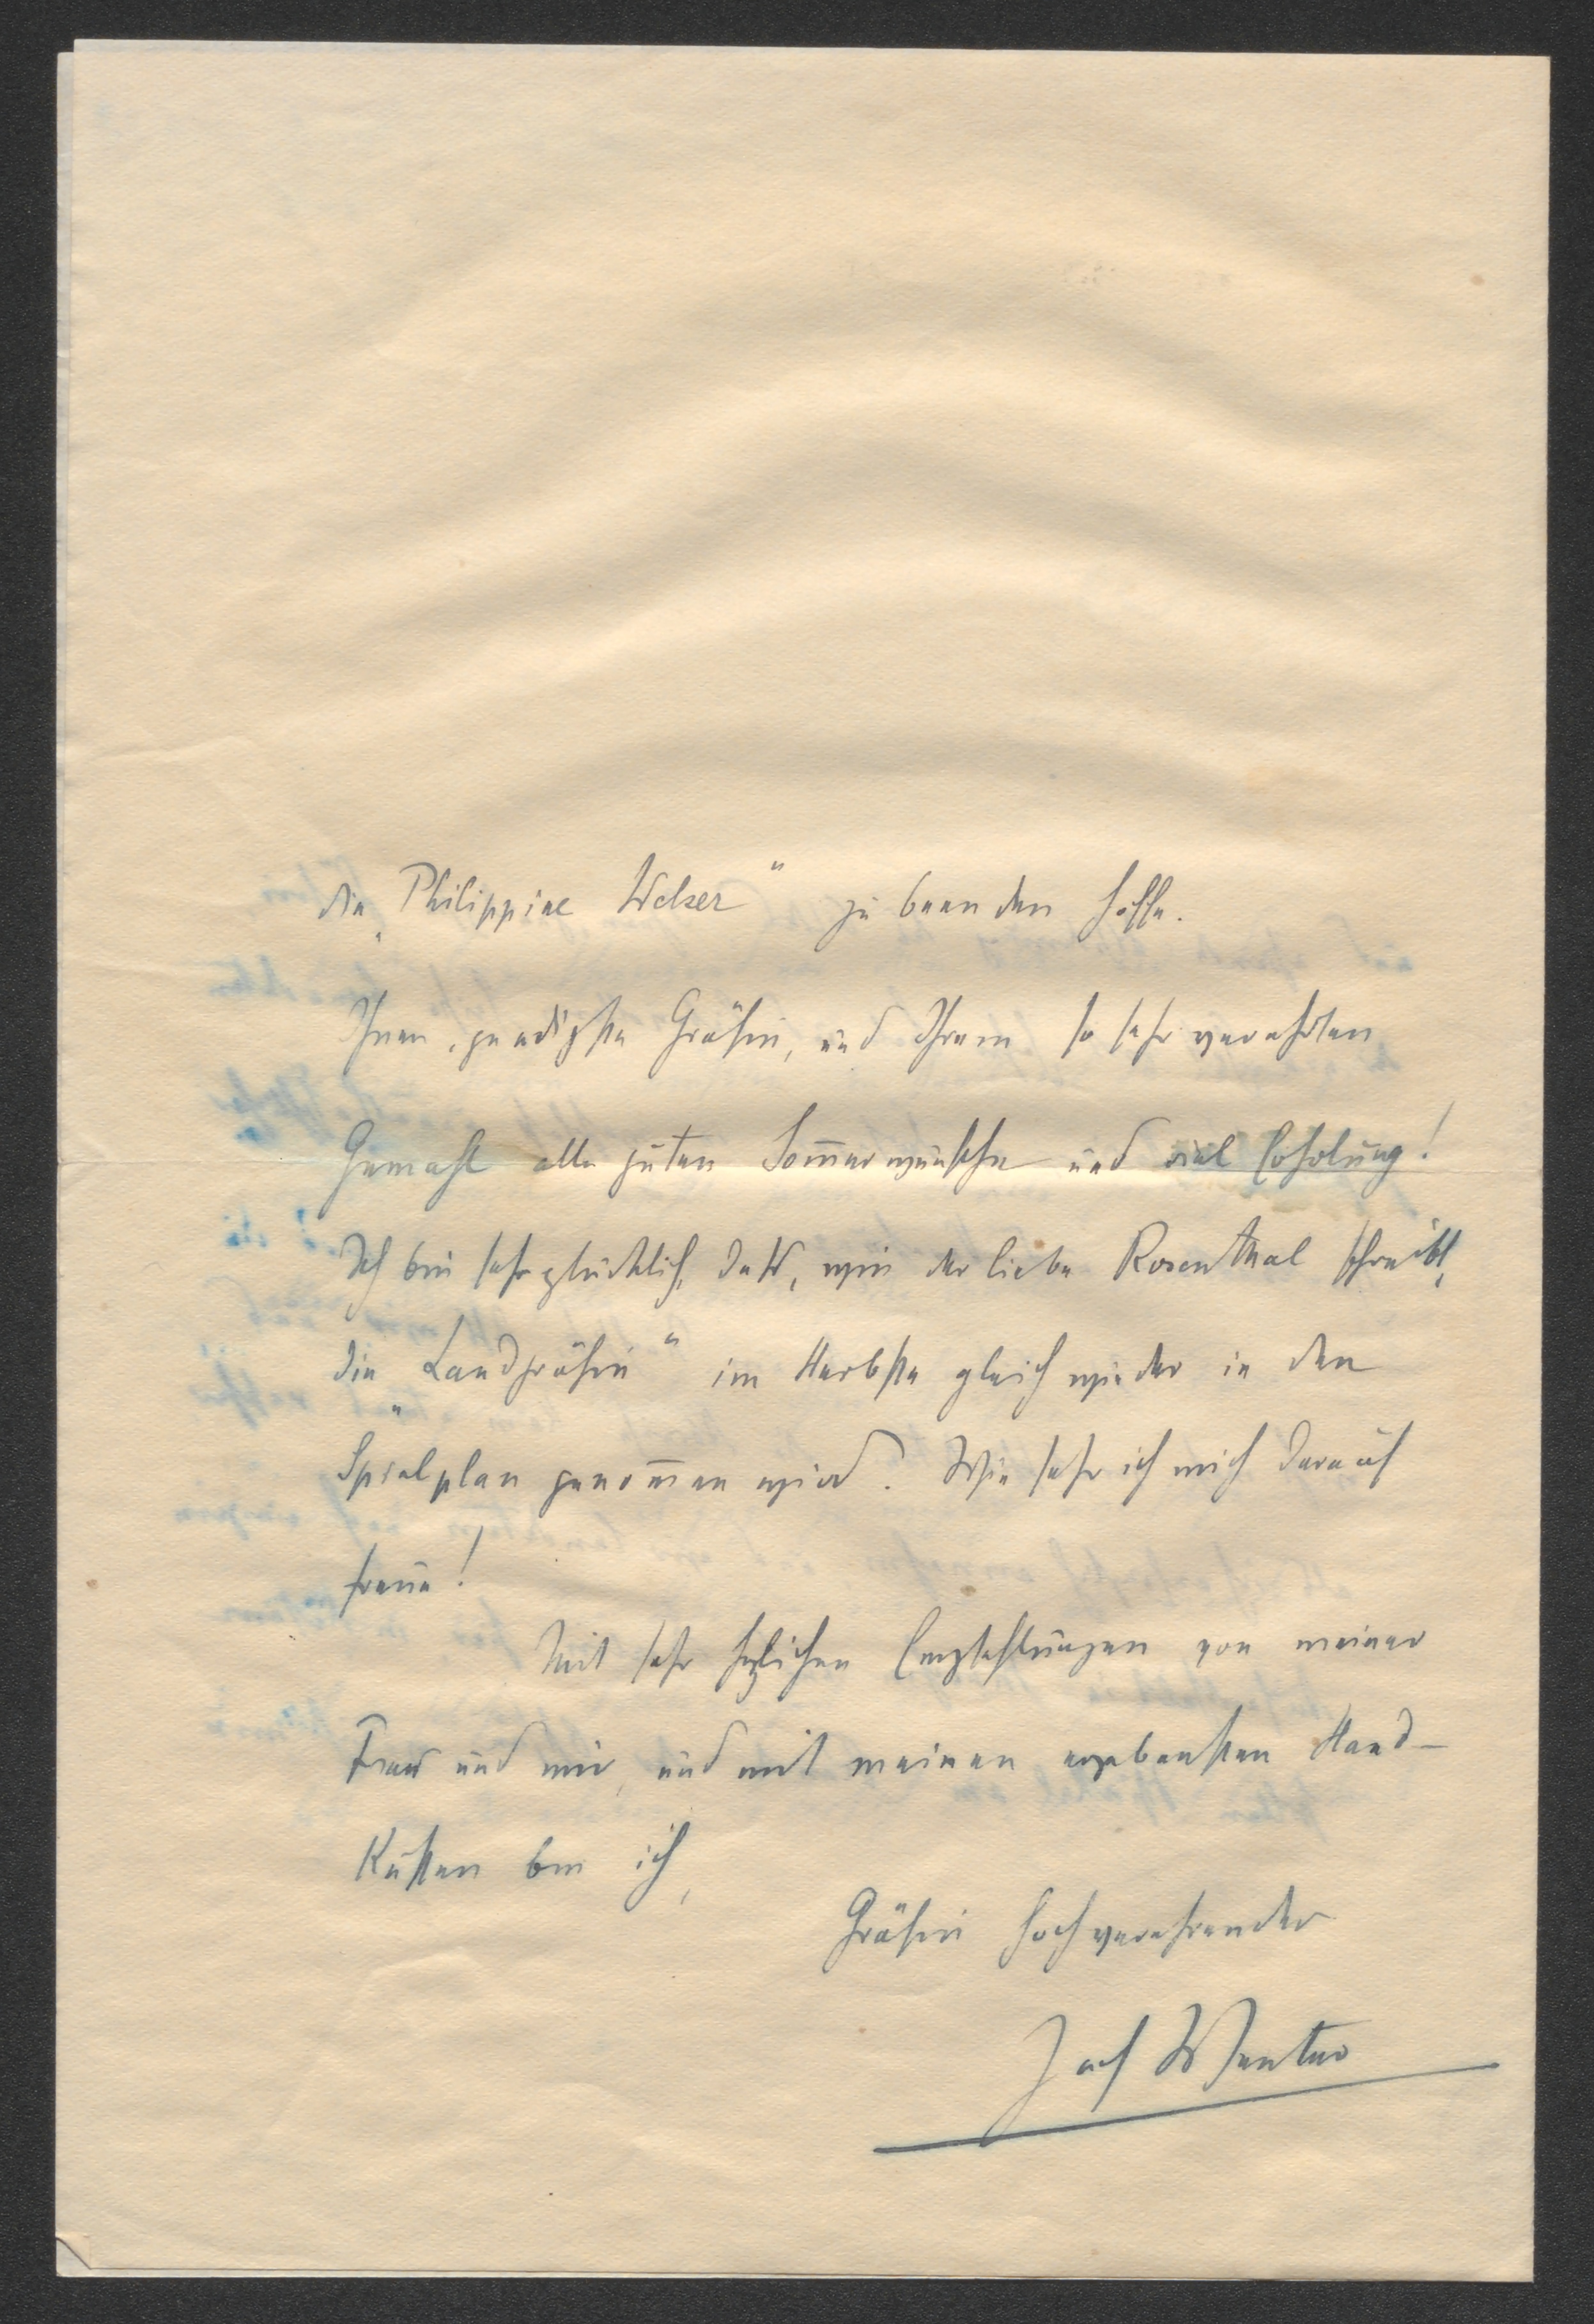 die „Philippine Welser“ zu beenden hoffe.
Ihnen, gnädigste Gräfin, und Ihrem so sehr verehrten
Gemahl alle guten Som̅erwünsche und viel Erholung!
Ich bin sehr glücklich, daß, wie der liebe Rosenthal schreibt,
die „Landgräfin“ im Herbste gleich wieder in den
Spielplan genom̅en wird. Wie sehr ich mich darauf
freue!
Mit sehr hzlichen Empfehlungen von meiner
Frau und mir, und mit meinen ergebensten Hand-
küssen bin ich,
Gräfin hochverehrender
Josef Wenter